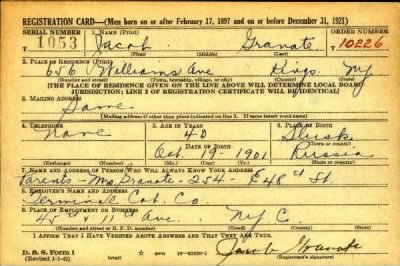 REGISTRATION CARD—(Men born on or after February 17, 1897 and on or before December 31, 1921)
SERIAL NUMBER 1. NAME (Print) ORDER NUMBER
1053 Jacob Granate 10226
(First) (Middle) (Last)
2. PLACE OF RESIDENCE (Print)
656 Williams Ave Kings NY
(Number and street) (Town, township, village, or city) (County) (State)
[THE PLACE OF RESIDENCE GIVEN ON THE LINE ABOVE WILL DETERMINE LOCAL BOARD
JURISDICTION; LINE 2 OF REGISTRATION CERTIFICATE WILL BE IDENTICAL]
3. MAILING ADDRESS
Same
[Mailing address if other than place indicated on line 2. If same insert word same]
4. TELEPHONE 5. AGE IN YEARS 6. PLACE OF BIRTH
None 40 Slutsk
DATE OF BIRTH (Town or county)
Oct. 19 - 1901 Russia
(Exchange) (Number) (Mo.) (Day) (Yr.) (State or country)
7. NAME AND ADDRESS OF PERSON WHO WILL ALWAYS KNOW YOUR ADDRESS
Parents - Mrs Granate - 254 - E 48th St.
8. EMPLOYER'S NAME AND ADDRESS
Terminal Cab. Co.
9. PLACE OF EMPLOYMENT OR BUSINESS
45th + 11th Ave. NYC
(Number and street or R. F. D. number) (Town) (County) (State)
I AFFIRM THAT I HAVE VERIFIED ABOVE ANSWERS AND THAT THEY ARE TRUE.
D. S. S. Form 1
(Revised 1-1-42) (over) Jacob Granate
(Registrant's signature)